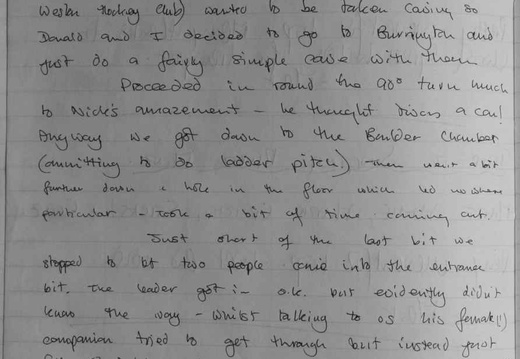 Weston Hockey Club) wanted to be taken caving so
Donald and I decided to go to Burrington and
just do a fairly simple cave with them
Proceeded in round the 90° turn much
to Nick's amazement - he thought a can!
Anyway we got down to the Boulder Chamber
(ommitting to do ladder pitch.) - then went a bit
further down a hole in the floor which led no where
particular - took a bit of time coming out.
Just short of the last bit we
stopped to let two people come into the entrance
bit. The leader got in o.k. but evidently didn't
know the way - whilst talking to us his female(!)
companion tried to get through but instead just